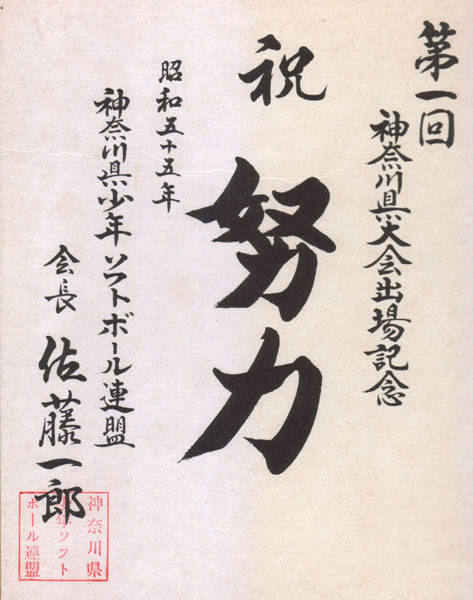 第一回
神奈川県大会出場記念
祝
努力
昭和五十五年
神奈川県少年ソフトボール連盟
会長 佐藤一郎
神奈川県
少年ソフト
ボール連盟